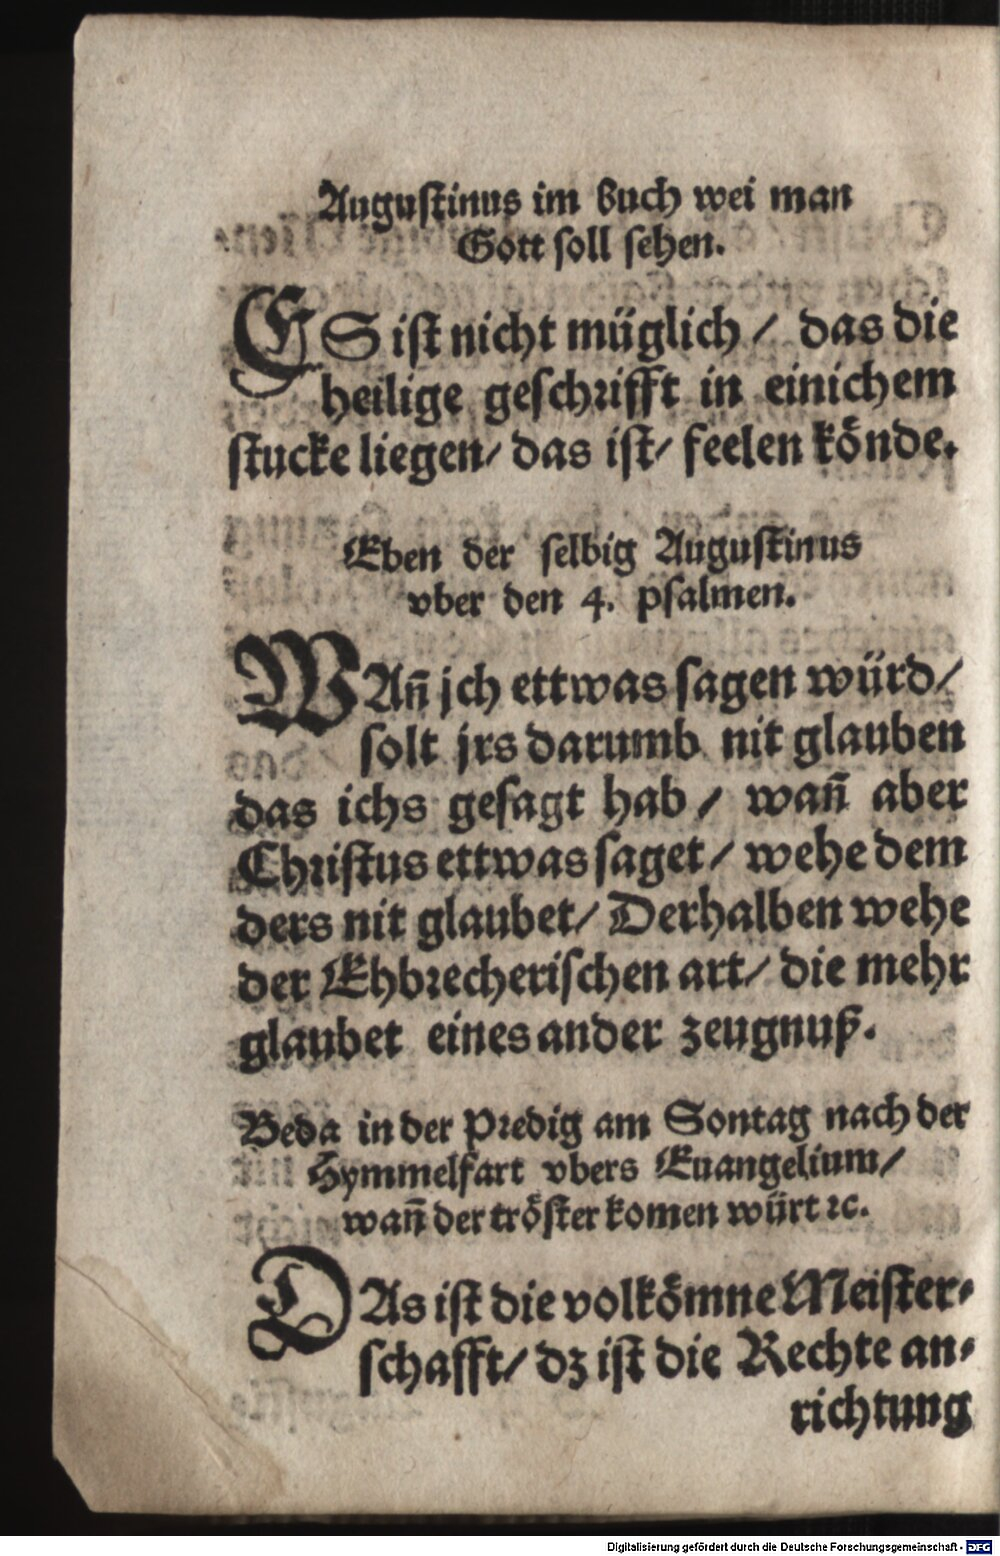 Augustinus im buch wei man
Gott soll sehen.
ES ist nicht müglich / das die
heilige geschrifft in einichem
stucke liegen/ das ist/ feelen könde.
Eben der selbig Augustinus
vber den 4. psalmen.
WAn̄ jch ettwas sagen würd/
solt jrs darumb nit glauben
das ichs gesagt hab / wan̄ aber
Christus ettwas saget / wehe dem
ders nit glaubet/ Derhalben wehe
der Ehbrecherischen art/ die mehr
glaubet eines ander zeugnuß.
Beda in der Predig am Sontag nach der
Hymmelfart vbers Euangelium/
wan̄ der tröster komen würt ꝛc.
DAs ist die volkömne Meister⸗
schafft/ dz ist die Rechte an⸗
richtung
Digitalisierung gefördert durch die Deutsche Forschungsgemeinschaft - DFG